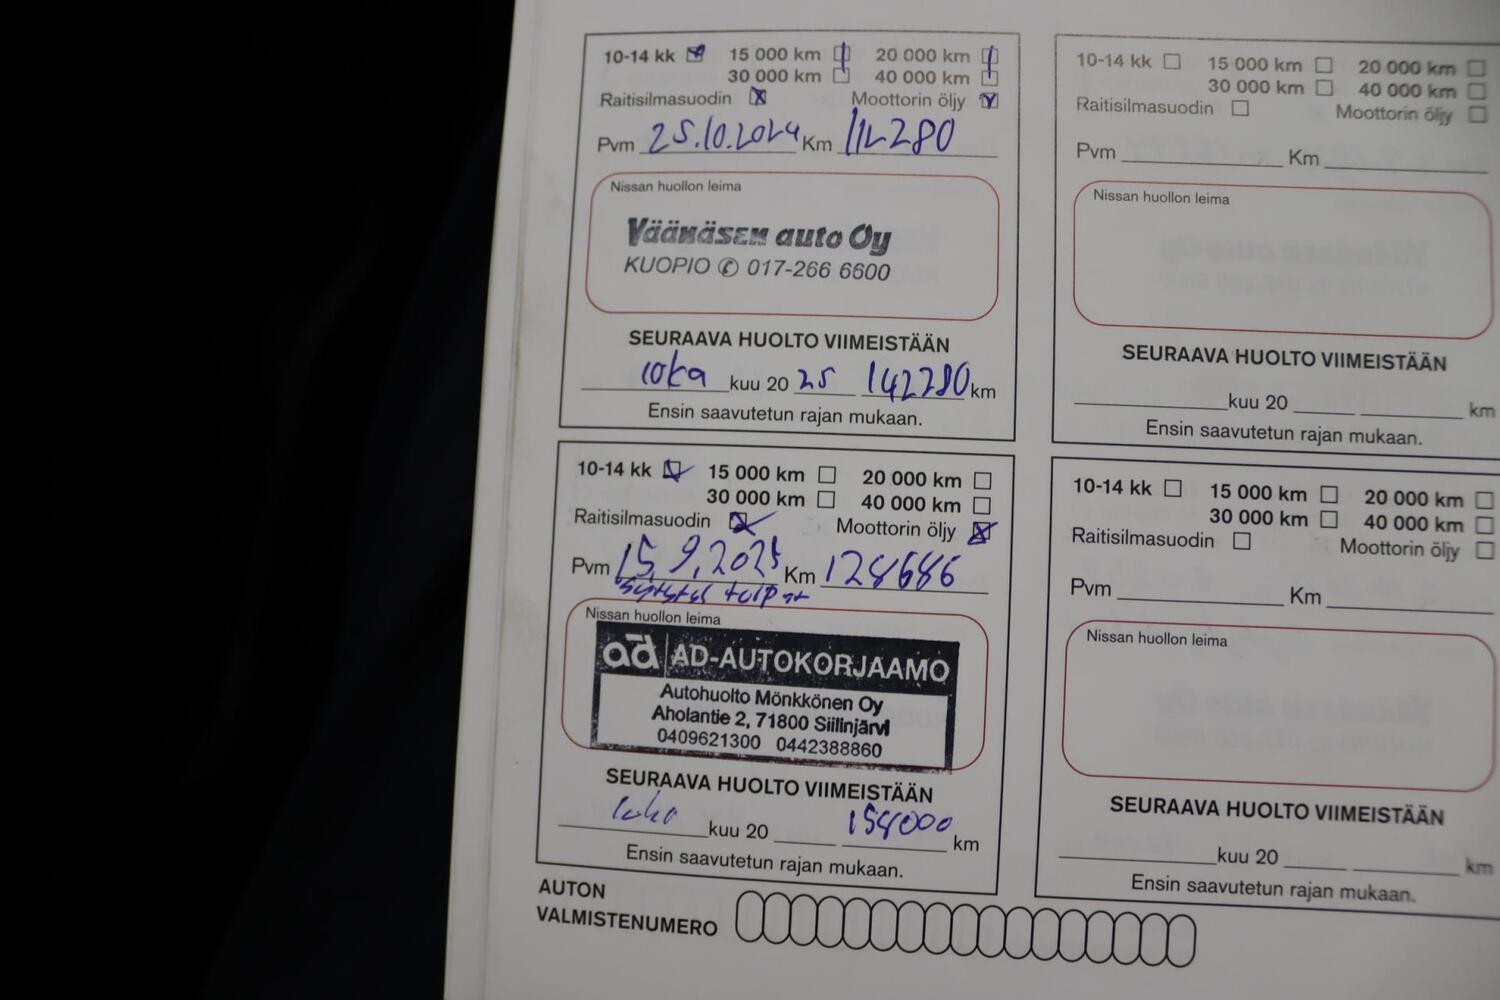 10-14 kk 15 000 km 20 000 km
30 000 km 40 000 km
Raitisilmasuodin Moottorin öljy
Pvm 25.10.2024 Km 112280
Nissan huollon leima
Väänäsen auto Oy
KUOPIO ✆ 017-266 6600
SEURAAVA HUOLTO VIIMEISTÄÄN
loka kuu 20 25 142280 km
Ensin saavutetun rajan mukaan.
10-14 kk 15 000 km 20 000 km
30 000 km 40 000 km
Raitisilmasuodin Moottorin öljy
Pvm 15.9.2025 Km 128686
Sytytys tulpat
Nissan huollon leima
ad AD-AUTOKORJAAMO
Autohuolto Mönkkönen Oy
Aholantie 2, 71800 Siilinjärvi
0409621300 0442388860
SEURAAVA HUOLTO VIIMEISTÄÄN
kuu 20 158000 km
Ensin saavutetun rajan mukaan.
10-14 kk 15 000 km 20 000 km
30 000 km 40 000 km
Raitisilmasuodin Moottorin öljy
Pvm Km
Nissan huollon leima
SEURAAVA HUOLTO VIIMEISTÄÄN
kuu 20 km
Ensin saavutetun rajan mukaan.
10-14 kk 15 000 km 20 000 km
30 000 km 40 000 km
Raitisilmasuodin Moottorin öljy
Pvm Km
Nissan huollon leima
SEURAAVA HUOLTO VIIMEISTÄÄN
kuu 20 km
Ensin saavutetun rajan mukaan.
AUTON
VALMISTENUMERO